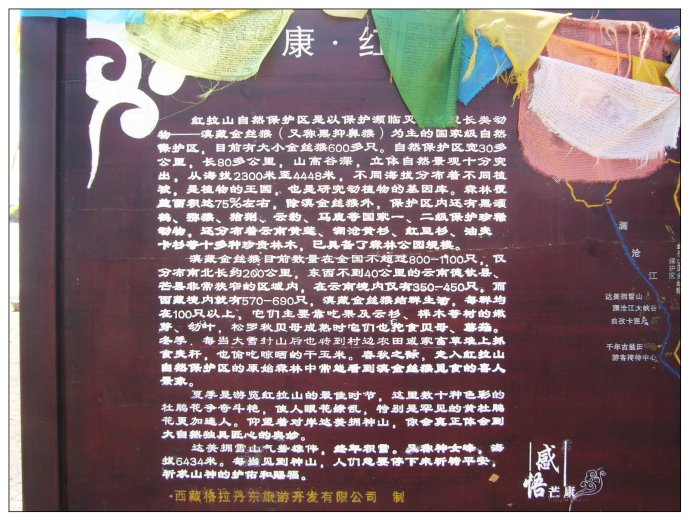 康·红
红拉山自然保护区是以保护濒临灭 长类动
物——滇藏金丝猴（又称黑抑鼻猴）为主的国家级自然
保护区，目前有大小金丝猴600多只。自然保护区宽30多
公里，长80多公里，山高谷深，立体自然景观十分突
出，从海拔2300米至4448米，不同海拔分布着不同植
被，是植物的王国，也是研究动植物的基因库。森林覆
盖面积达75%左右，除滇藏金丝猴外，保护区内还有黑
鹤、猕猴、猞猁、云豹、马鹿等国家一、二级保护珍稀
动物，还分布着云南黄莲、澜沧黄杉、红豆杉、油麦
卡杉等十多种珍贵林木，已具备了森林公园规模。
滇藏金丝猴目前数量在全国不超过800-1100只，仅
分布南北长约200公里，东西不到40公里的云南德钦县、
芒县非常狭窄的区域内，在云南境内仅有350-450只。而
西藏境内就有570-690只，滇藏金丝猴结群生活，每群均
在100只以上，它们主要靠吃果及云杉、桦木等树的嫩
芽、幼叶，松罗秋贝母成熟时它们也 食贝母、蘑菇。
冬季，每当大雪封山后也转到村边农田或家畜草堆上抓
食麦秆，也偷吃晾晒的干玉米。春秋之际，走入红拉山
自然保护区的原始森林中常能看到滇金丝猴觅食的喜人
景象。
夏季是游览红拉山的最佳时节，这里数十种色彩的
杜鹃花争奇斗艳，值人眼花缭乱，特别是罕见的黄杜鹃
花更加迷人。仰望着对岸达美拥神山，你会真正体会到
大自然独具匠心的奥妙。
达美拥雪山气势雄伟，终年积雪。 称神女峰，海
拔6434米。每当见到神山，人们总要停下来祈祷平安，
祈求山神的护佑和赐福。
·西藏格拉丹东旅游开发有限公司 制
澜
沧
江
达美拥雪山
澜沧江大峡谷
曲孜卡
千年古盐田
游客接待中心
感
悟芒康